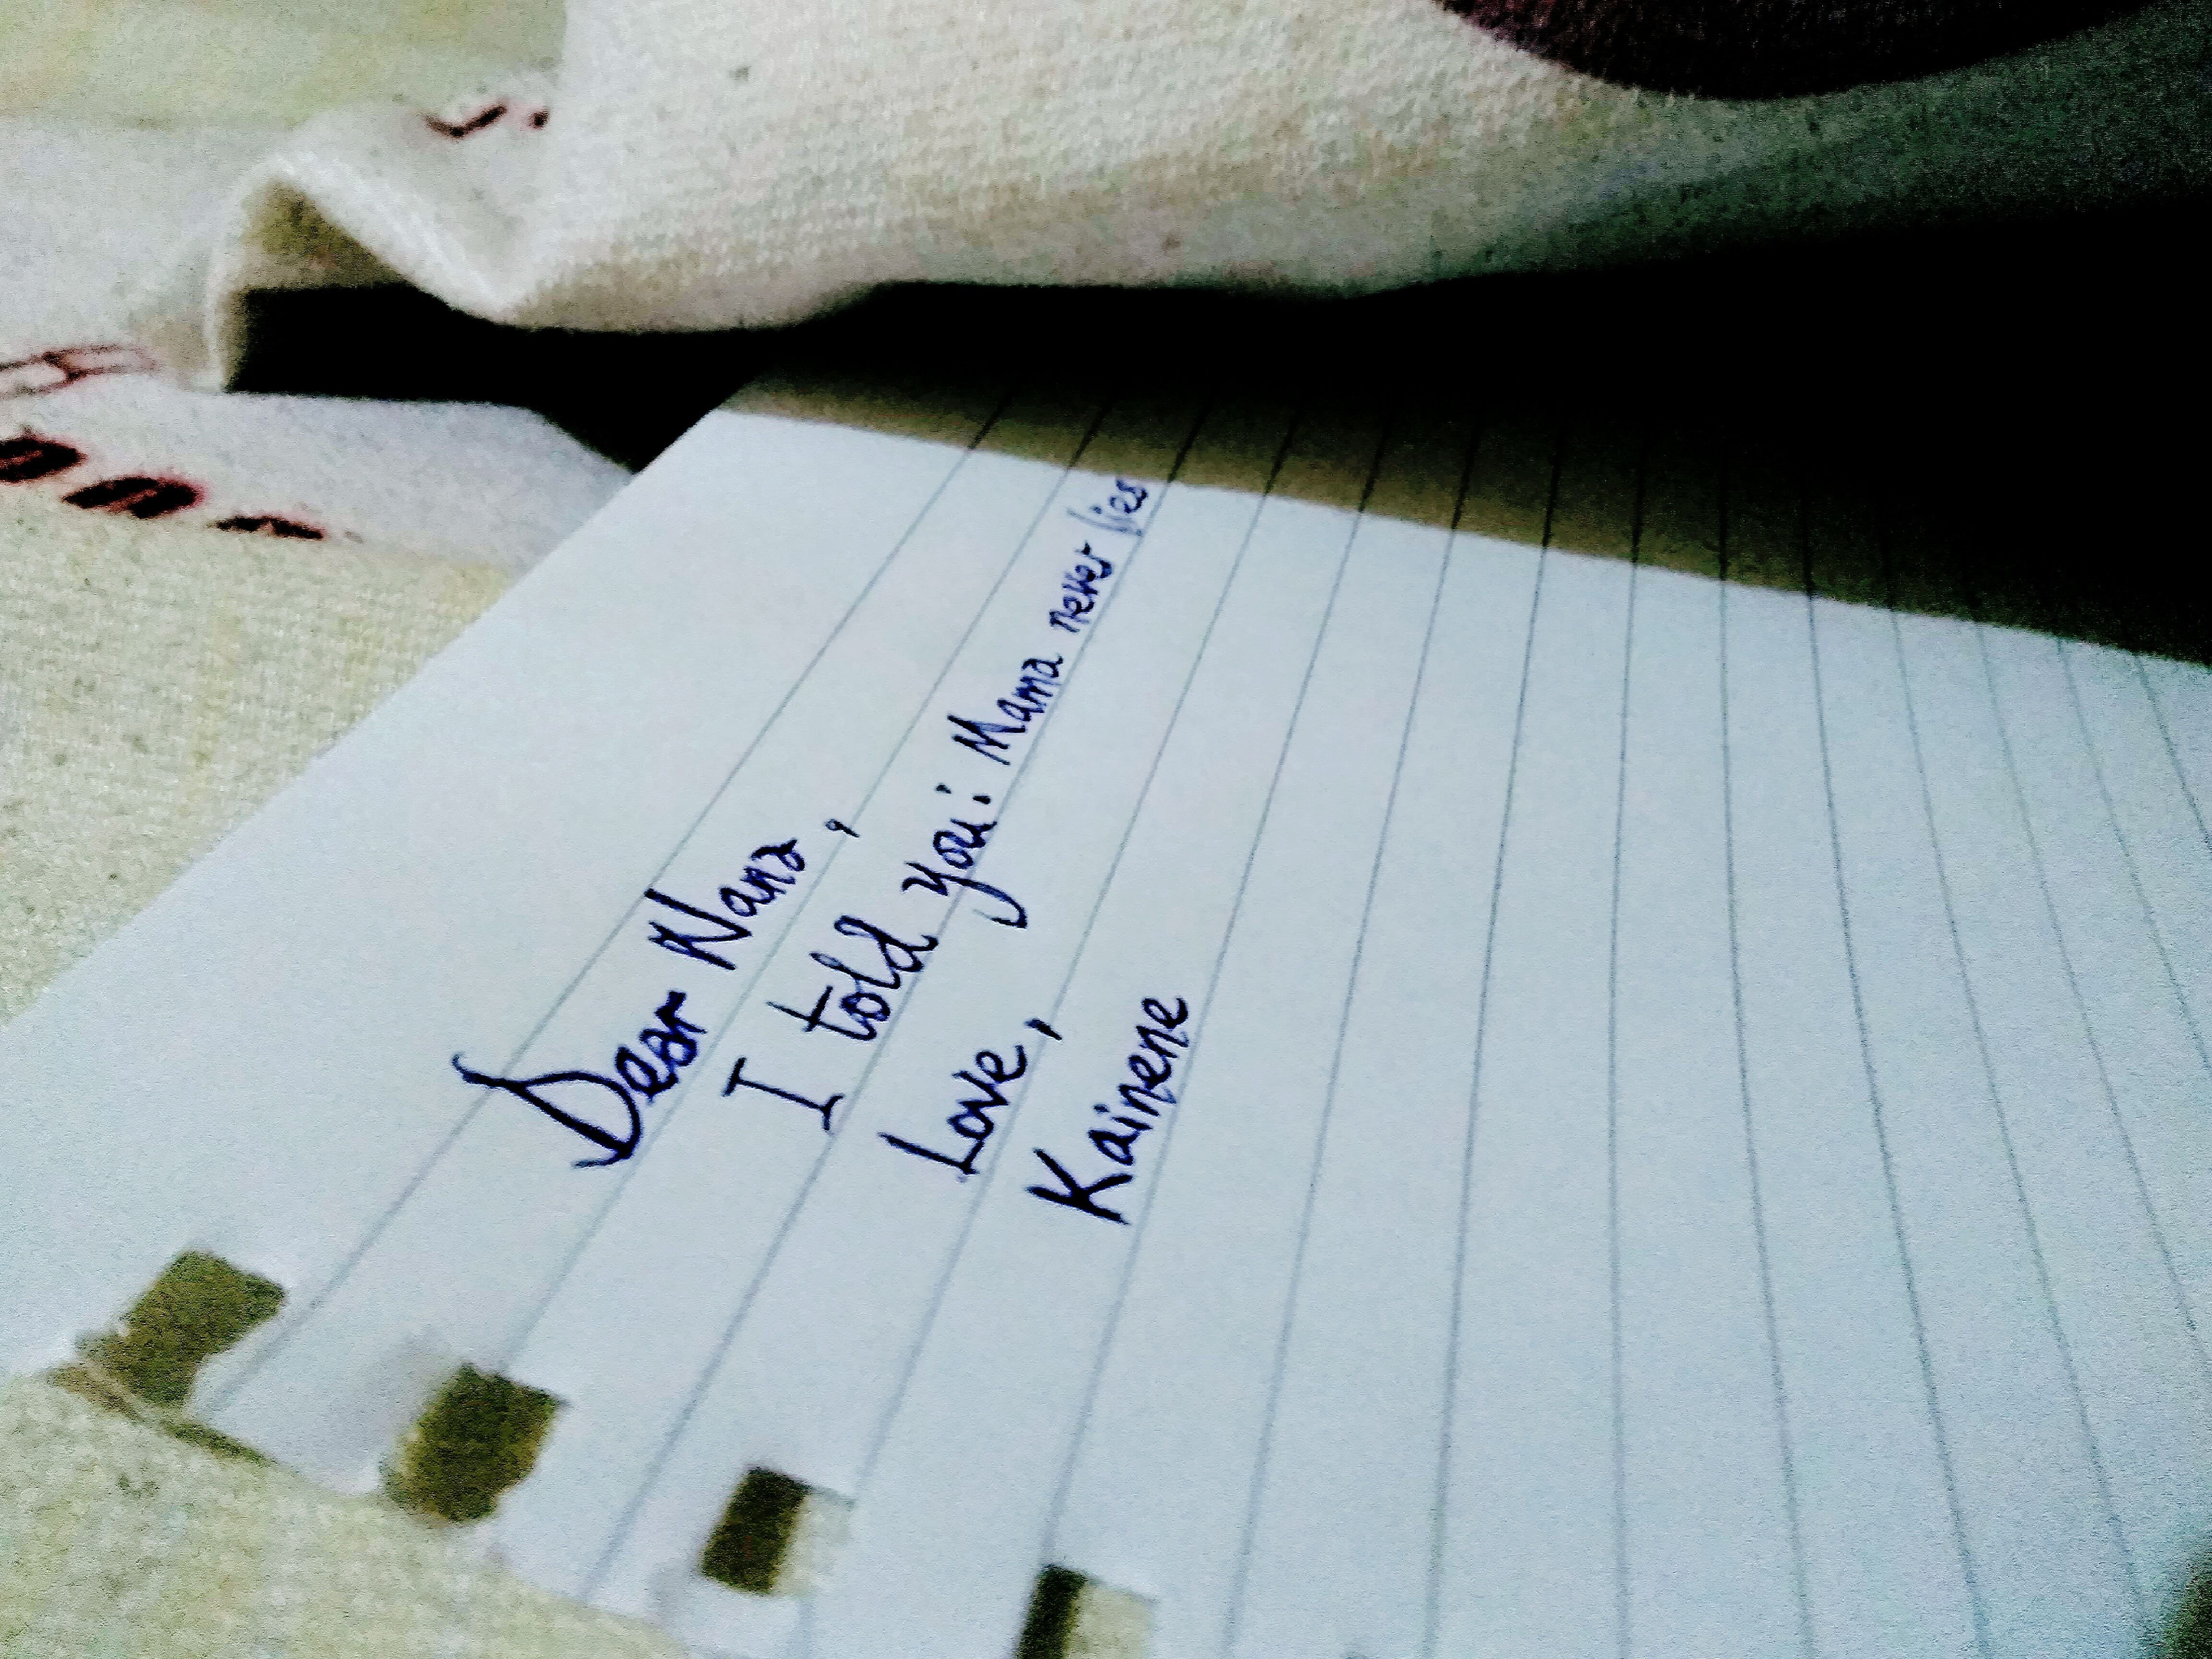 Dear Nana,
I told you: Mama never lies
Love,
Kainene